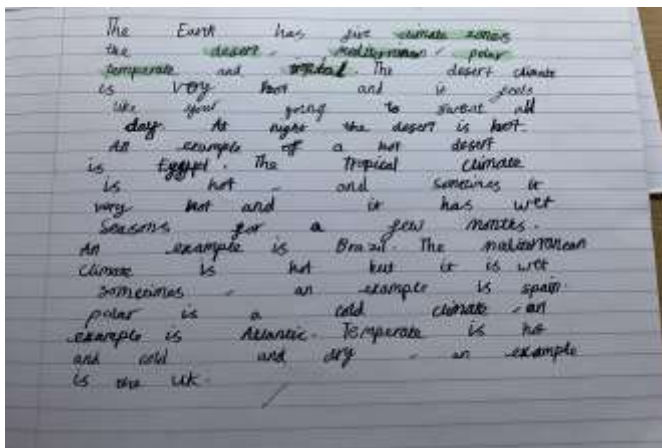 The Earth has five climate zones
the desert, mediterranean, polar
temperate and The desert climate
is very hot and it feels
like your going to sweat all
day At night the desert is hot.
An example of a hot desert
is Egypt. The Tropical climate
is hot - and sometimes it
very hot and it has wet
seasons for a few months.
An example is Brazil. The mediterranean
climate is hot but it is wet
sometimes - an example is spain.
polar is a cold climate - an
example is Atlantic. Temperate is ho
and cold and dry - an example
is the UK.